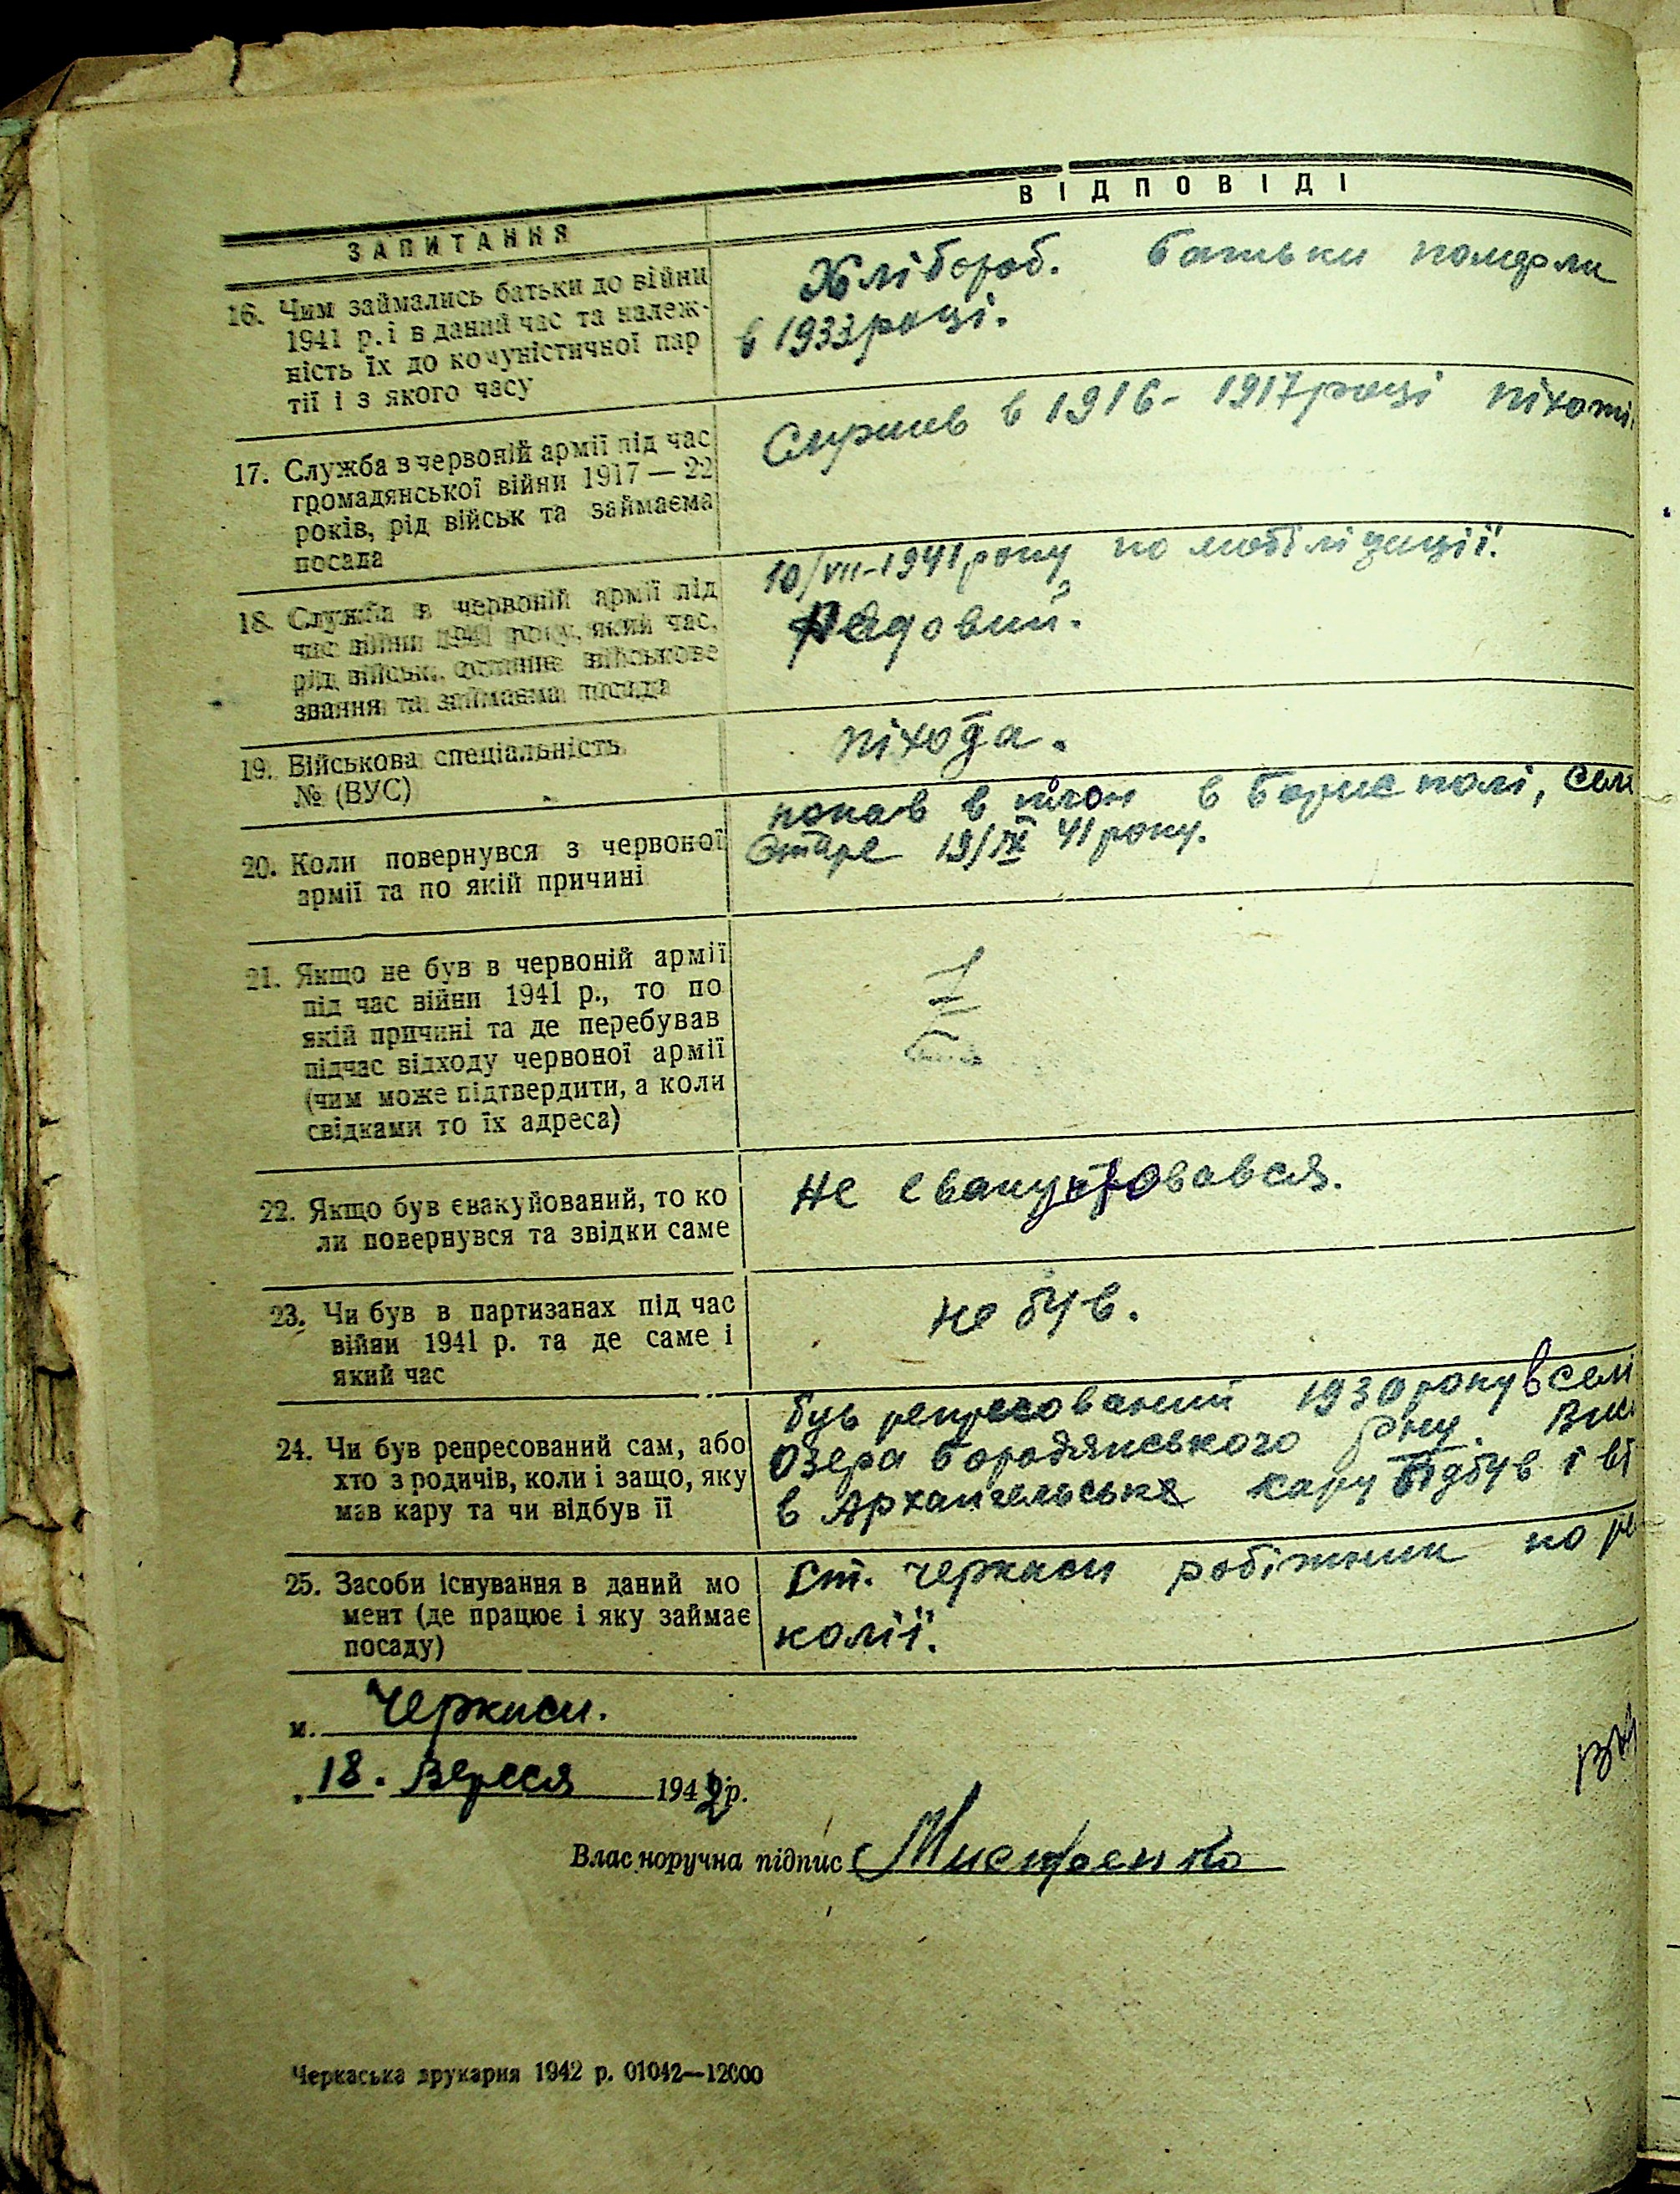 ЗАПИТАННЯ
ВІДПОВІДІ
16. Чим займались батьки до війни
1941 р. і в даний час та належ-
ність їх до комуністичної пар
тії і з якого часу
Хлібороб. Батьки померли
в 1933 році.
17. Служба в червоній армії під час
громадянської війни 1917 — 22
років, рід військ та займаєма
посада
Служив в 1916 - 1917 році піхоті.
18. Служба в червоній армії під
час війни 1941 року, який час,
рід військ, останнє військове
звання та займаєма посада
10/VII-1941 року по мобілізації.
Рядовий.
19. Військова спеціальність
№ (ВУС)
піхота.
20. Коли повернувся з червоної
армії та по якій причині
попав в плон в Борисполі, селі
Старе 19/IX 41 року.
21. Якщо не був в червоній армії
під час війни 1941 р., то по
якій причині та де перебував
підчас відходу червоної армії
(чим може підтвердити, а коли
свідками то їх адреса)
22. Якщо був євакуйований, то ко
ли повернувся та звідки саме
Не евакуіровався.
23. Чи був в партизанах під час
війни 1941 р. та де саме і
який час
Не був.
24. Чи був репресований сам, або
хто з родичів, коли і защо, яку
мав кару та чи відбув її
був репресований 1930 року в селі
Озера Бородянського р-ну.
в Архангельське кару відбув і
25. Засоби існування в даний мо
мент (де працює і яку займає
посаду)
Ст. Черкаси робітник по
колії.
м. Черкаси.
18. Вересня 1942 р.
Власноручна підпис
Черкаська друкарня 1942 р. 01042—12000